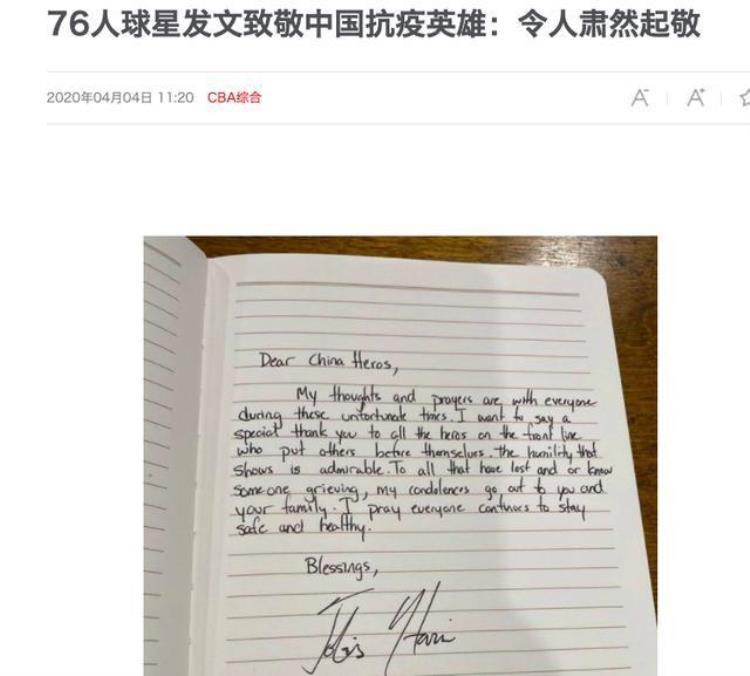 76人球星发文致敬中国抗疫英雄：令人肃然起敬
2020年04月04日 11:20 CBA综合
A- A+
Dear China Heros,
My thoughts and prayers are with everyone
during these unfortunate times. I want to say a
special thank you to all the heros on the front line
who put others before themselves. the humility that
shows is admirable. To all that have lost and or know
someone grieving, my condolences go out to you and
your family. I pray everyone continues to stay
safe and healthy.
Blessings,
Tobias Harris